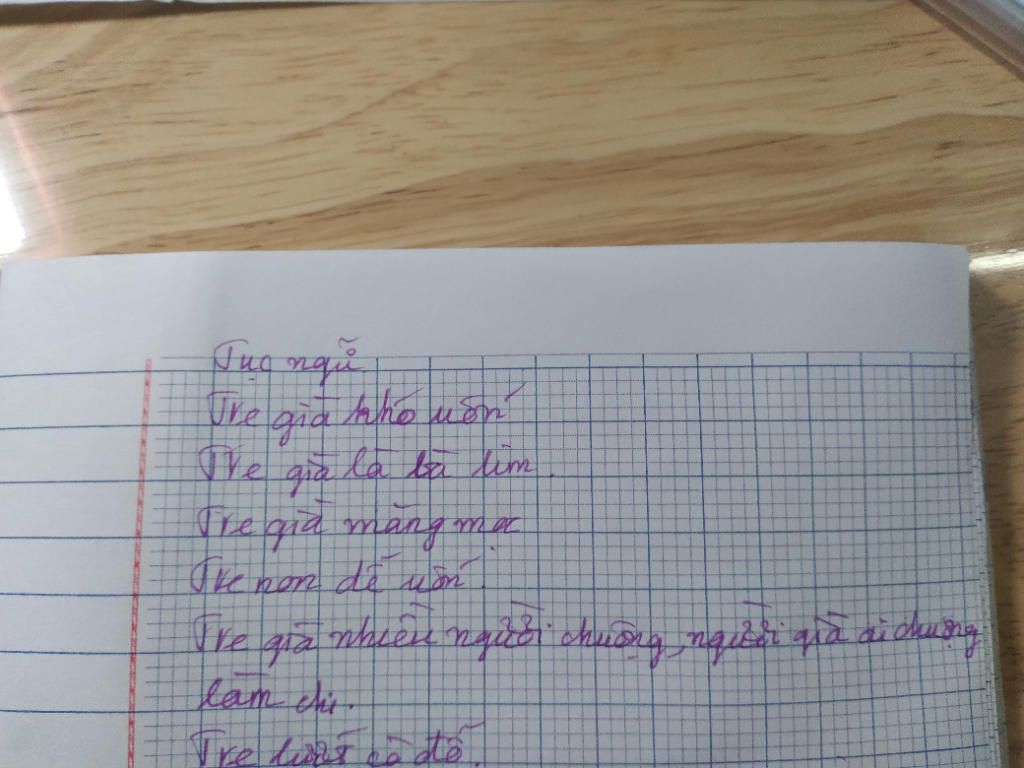 Tục ngữ
Tre già khó uốn
Tre già là bà lim.
Tre già măng mọc
Tre non dễ uốn.
Tre già nhiều người chuộng, người già ai chuộng
làm chi.
Tre lướt cò đỗ.